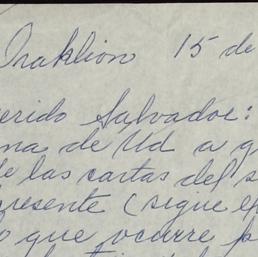 Iraklion 15 de
erido Salvador:
na de Ud a q
de las cartas del s
presente (sigue e
o que ocurre p